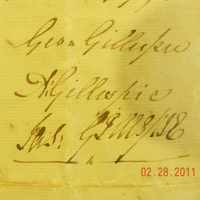 Geo Gillespie
A Gillespie
Jas Gillespie
02.28.2011